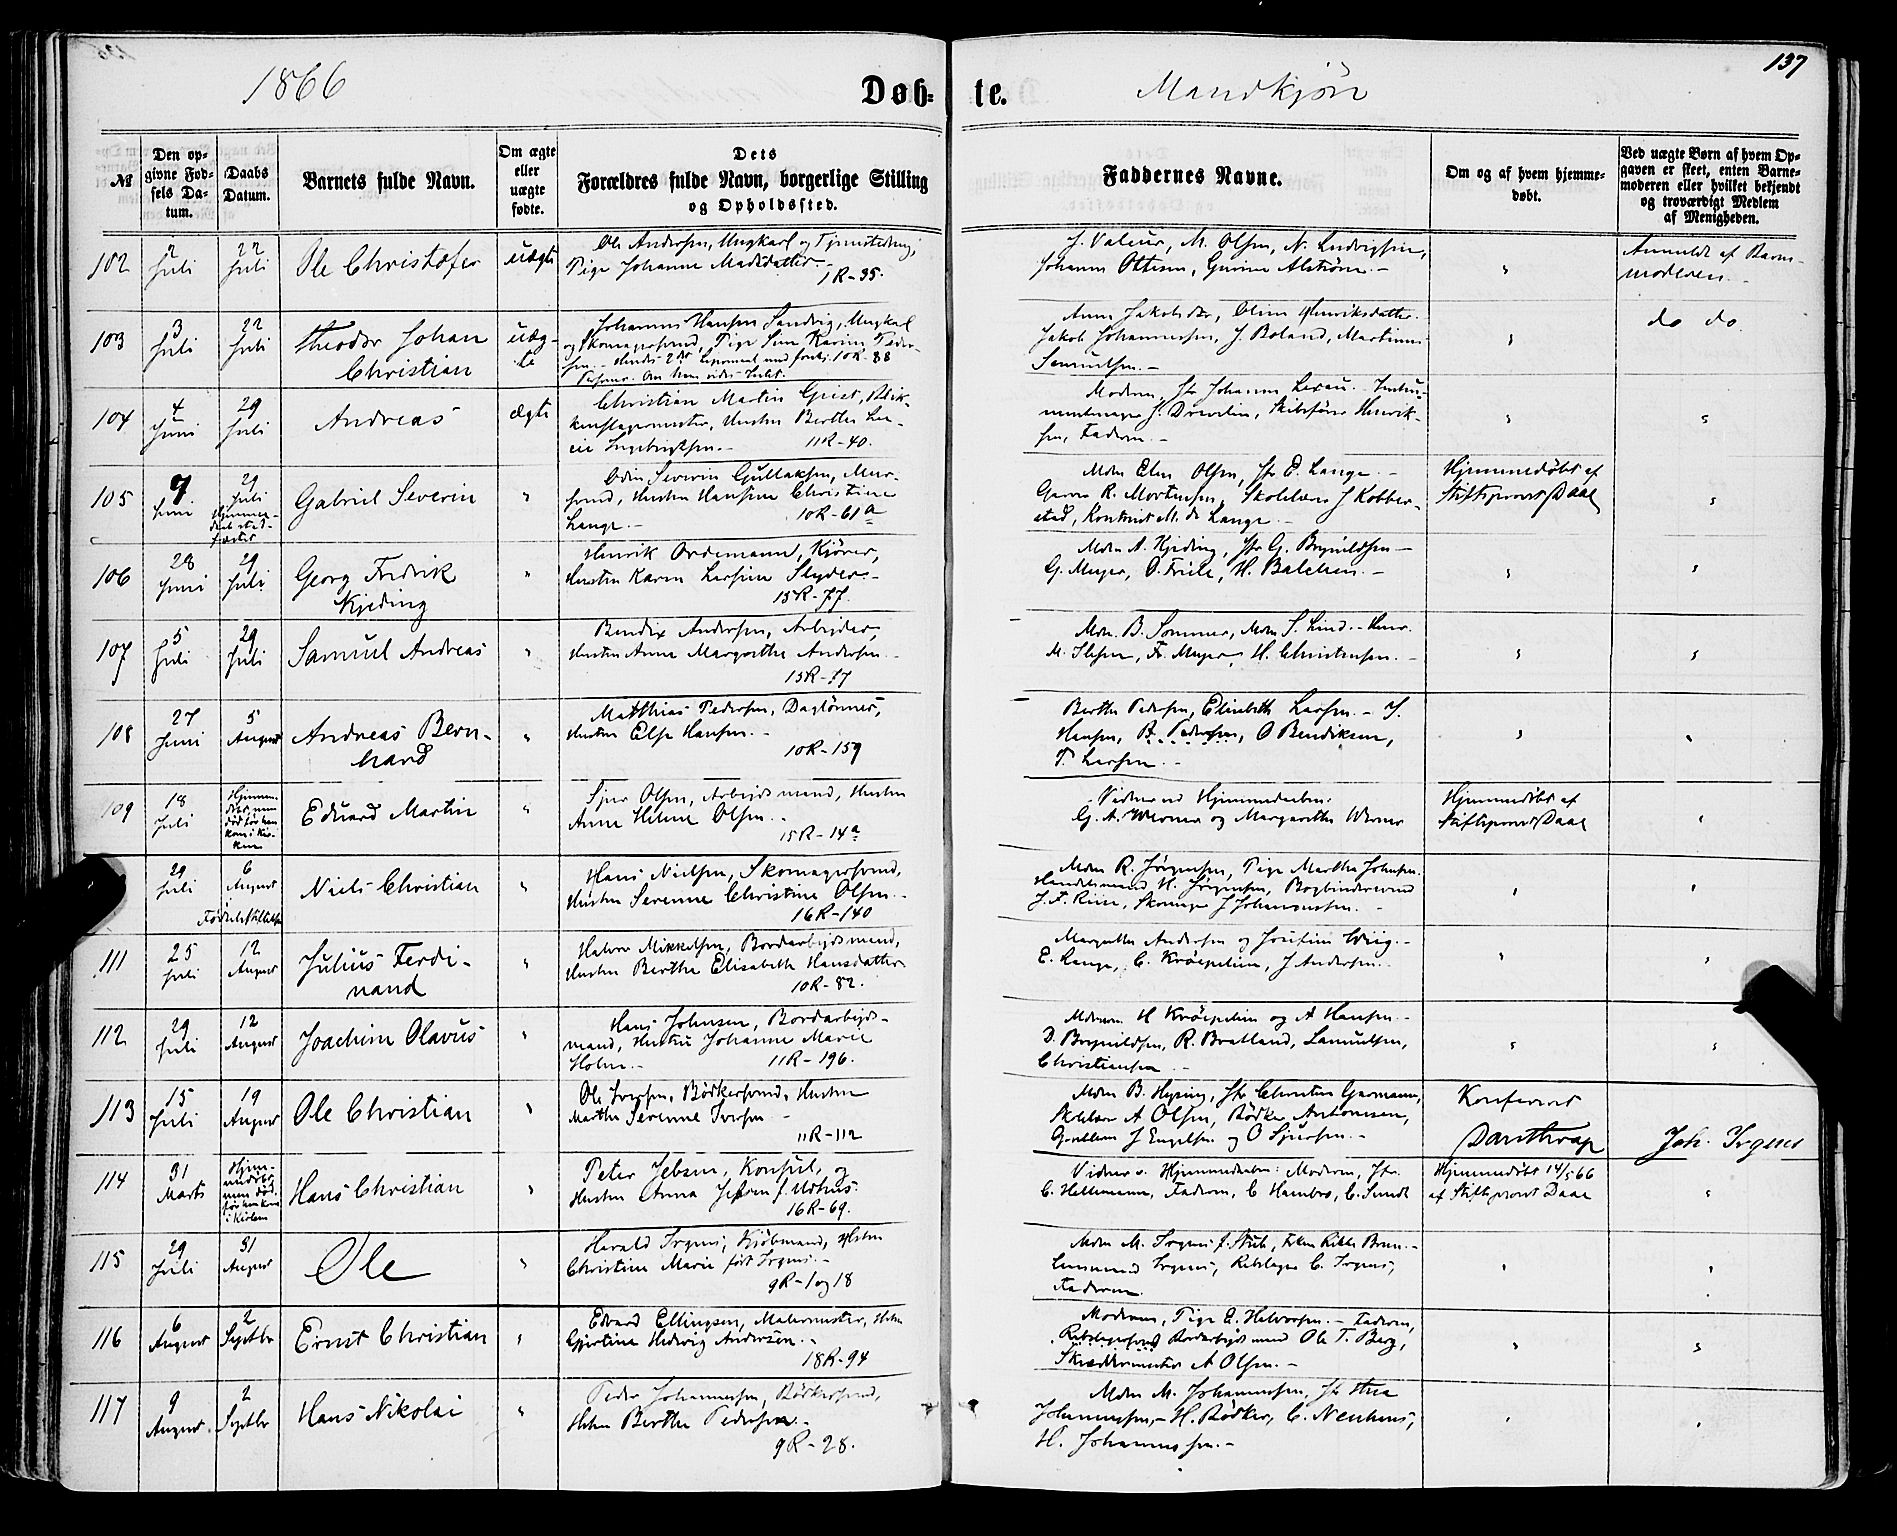 137
1866
Døb-
te.
Mandkjøn
№
Den op-
givne Fød-
sels Da-
tum.
Daabs
Datum.
Barnets fulde Navn.
Om ægte
eller
uægte
fødte.
Dets
Forældres fulde Navn, borgerlige Stilling
og Opholdssted.
Faddernes Navne.
Om og af hvem hjemme-
døbt.
Ved uægte Børn af hvem Op-
gaven er skeet, enten Barne-
moderen eller hvilket bekjendt
og troværdigt Medlem
af Menigheden.
102
2 Juli
22 Juli
Ole Christofer
uægte
Ole Andersen, Ungkarl og
Pige Johanne Madsdatter.
1R-35.
J. Valeur, M. Olsen, N. Ludvigsen,
Johanne Ottesen,
Anmeldt af Barne-
moderen.
103
3 Juli
22 Juli
Theodor Johan
Christian
uæg-
te
Johannes Hansen Sandvig, Ungkarl
og Skomagersvend, Pige
10R-88
Jakob Johannessen, J. Boland,
Samuelsen.-
do do.
104
4 Juni
29 Juli
Andreas
ægte
Christian Martin
Ingebrigtsen.-
11R-40.
Moderen, Jfr Johanne
Faderen.-
105
9 Juni
29 Juli
Hjemme-
Gabriel Severin
"
Odin Severin Gullaksen, Mur-
svend, Hustru Hansine Christine
Lange.-
10R-61a
Mdm Elen Olsen, Jfr E. Lange.-
R. Mortensen, Skolelærer J Kobber-
stad, Lange.-
Hjemmedøbt af
Stiftsprovst Daae
106
28 Juni
29 Juli
Georg Fredrik
Kjeding
"
Henrik Ordemann, Kjører,
Hustru Karen Larsine Slyder.-
15R-77.
Mdm A. Kjeding, Jfr G. Brynildsen-
G. Meyer, O. Friele, H. Balchen.-
107
5 Juli
29 Juli
Samuel Andreas
"
Bendix Andersen, Arbejder,
Hustru Anne Margrethe Andersen.-
15R-17
Mdm. B. Sommer, Mdm S. Lind.-
Fr. Meyer, H. Christensen.-
108
27 Juni
5 August
Andreas Bern-
hard
"
Matthias Pedersen, Daglønner,
Hustru Elsje Hansen.-
10R-159
Berthe Pedersen, Elisabeth Larsen.- J.
Hansen, B. Pedersen, O Bendiksen,
T. Larsen.-
109
18 Juli
Hjemme-
døbt, men
død før han
kom i Kir-
ken
Eduard Martin
"
Sjur Olsen, Arbejdsmand, Hustru
Anne Helene Olsen.-
15R-14a
Vidner ved Hjemmedaaben:
G. A. Werner og Margarethe Werner
Hjemmedøbt af
Stiftsprovst Daae
29 Juli
6 August
Niels Christian
"
Hans Nielsen, Skomagersvend,
Hustru Serenne Christine Olsen.-
16R-140
Mdm R. Jørgensen, Pige Marthe Johnsen.
Handelsmand H. Jørgensen, Bogbindersvend
J. F. Riise, Skomager J Johannessen.-
111
25 Juli
12 August
Julius Ferdi-
nand
"
Halvor Mikkelsen, Bordarbejdsmand,
Hustru Berthe Elisabeth Hansdatter
10R-82.
Margrethe Andersen og Josefine Wiig.-
E. Lange, C. Krøepelien, J Andersen.-
112
29 Juli
12 August
Joachim Olavus
"
Hans Johnsen, Bordarbejds-
mand, Hustru Johanne Marie
Holm.-
11R-196.
H Krøepelien og A Hansen.-
D. Brynildsen, R. Bratland, Samuelsen,
Christiansen.-
113
15 Juli
19 August
Ole Christian
"
Ole Iversen, Bødkersvend, Hustru
Marthe Serenne Iversen.-
11R-112
Mdm B. Heysing, Jfr Christine Garmann,
A Olsen, Bødker Antonisen,
J Engelsen og O Sjursen.-
Konfereret
Danthrap
Joh. Irgens
114
31 Marts
Hjem-
medøbt,
men død
før han kom
i Kirken
Hans Christian
"
Peter Jebsen, Konsul, og
Hustru Anna Jebsen f.
16R-69.
Vidner v. Hjemmedaaben: Moderen, Jfr.
C. Hellemann, Faderen, C Hambro, C. Sundt
Hjemmedøbt 14/5 66
af Stiftsprovst Daae
115
29 Juli
31 August
Ole
"
Harald Irgens, Kjøbmand, Hstru
Christine Marie født Irgens.-
9R-1 og 18
Mdm M. Irgens f. Stub, Frkn Rikke Brun.-
Lensmand Irgens, Rebslager C. Irgens,
Faderen.
116
6 August
2 Septbr
Ernst Christian
"
Edvard Ellingsen, Malermester, Hstru
Gjertine Hedvig Andersen.-
18R-94
Moderen, Pige E. Halvorsen.- Faderen,
Rebslagersvend Bordarbejdsmand Ole T. Berg,
Skræddermester A Olsen.-
117
9 August
2 Septbr
Hans Nikolai
"
Peder Johannessen, Bødkersvend,
Hstru Berthe Pedersen.-
9R-28.
Mdm M. Johannessen, Jfr
Johannessen,- H. Bødker, C. Neuhaus,
H. Johannessen.-